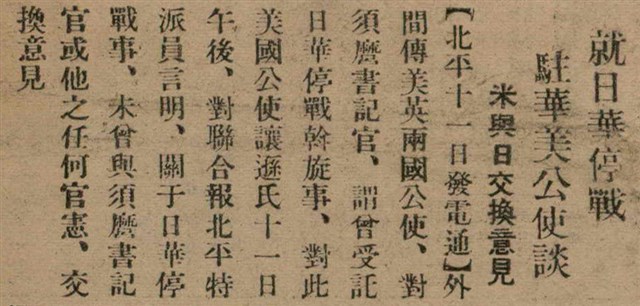 就日華停戰
駐華美公使談
米與日交換意見
【北平十一日發電通】外
間傳美英兩國公使、對
須麿書記官、謂曾受託
日華停戰斡旋事、對此
美國公使讓遜氏十一日
午後、對聯合報北平特
派員言明、關于日華停
戰事、未曾與須麿書記
官或他之任何官憲、交
換意見